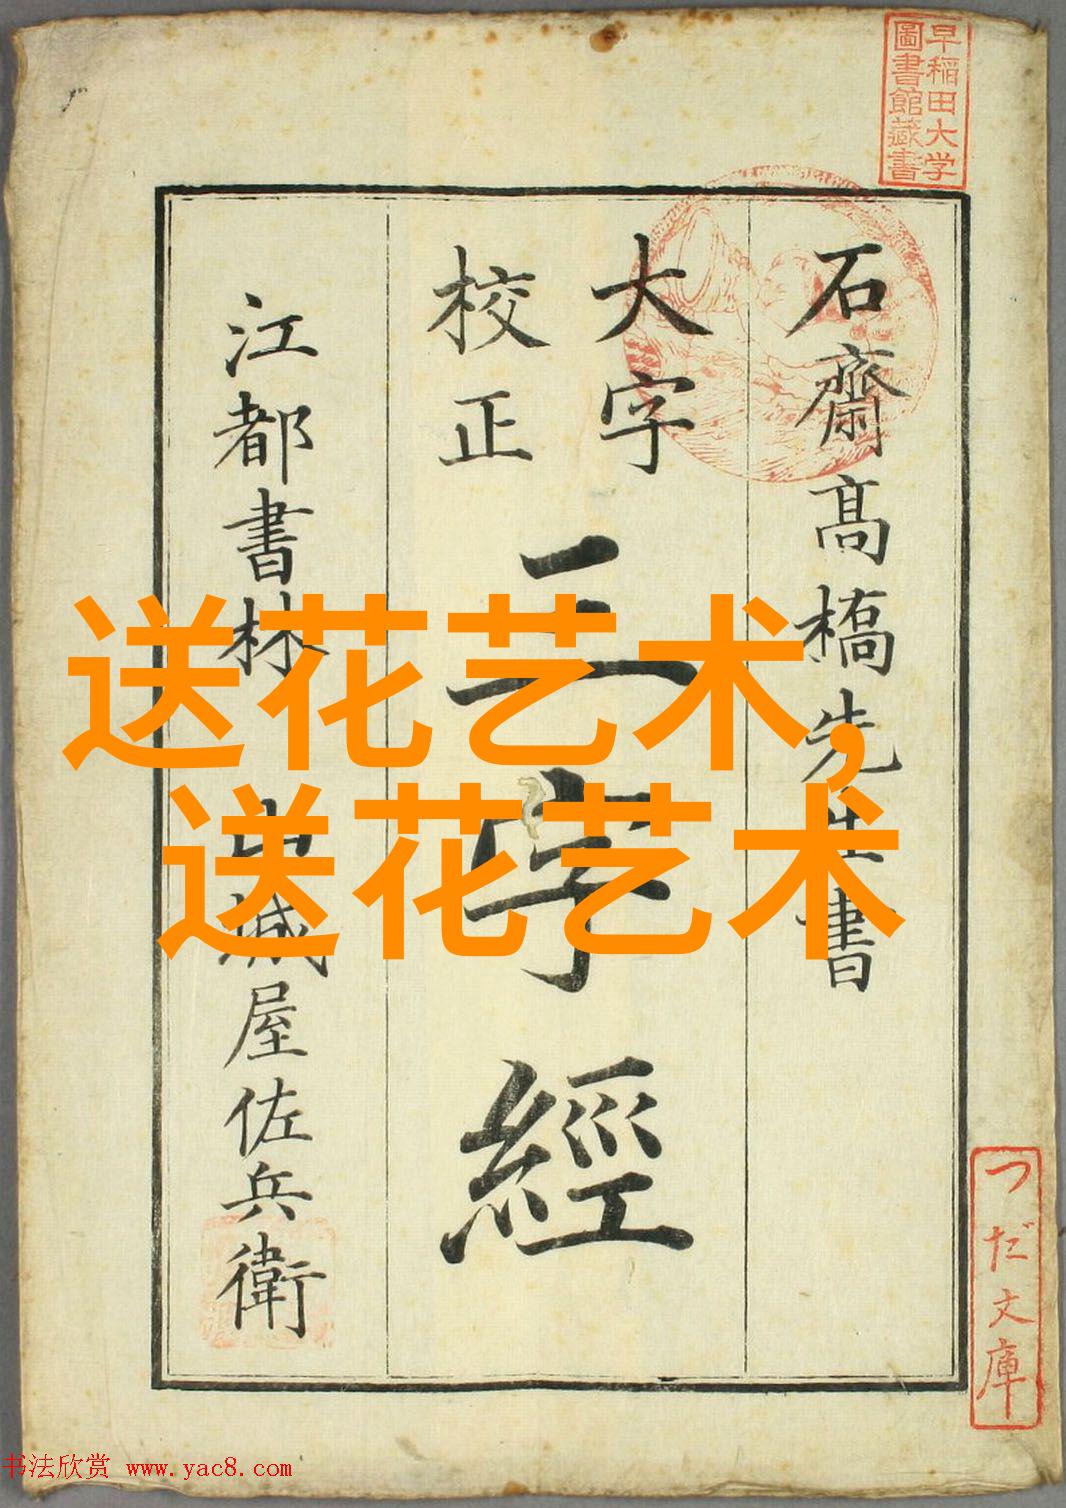 早稲田大学
圖書館藏書
石齋髙橋先生書
大字
校正
三字經
江都書林 山城屋佐兵衛
送花艺术,
送花艺术
つだ文庫
书法欣赏 www.yac8.com